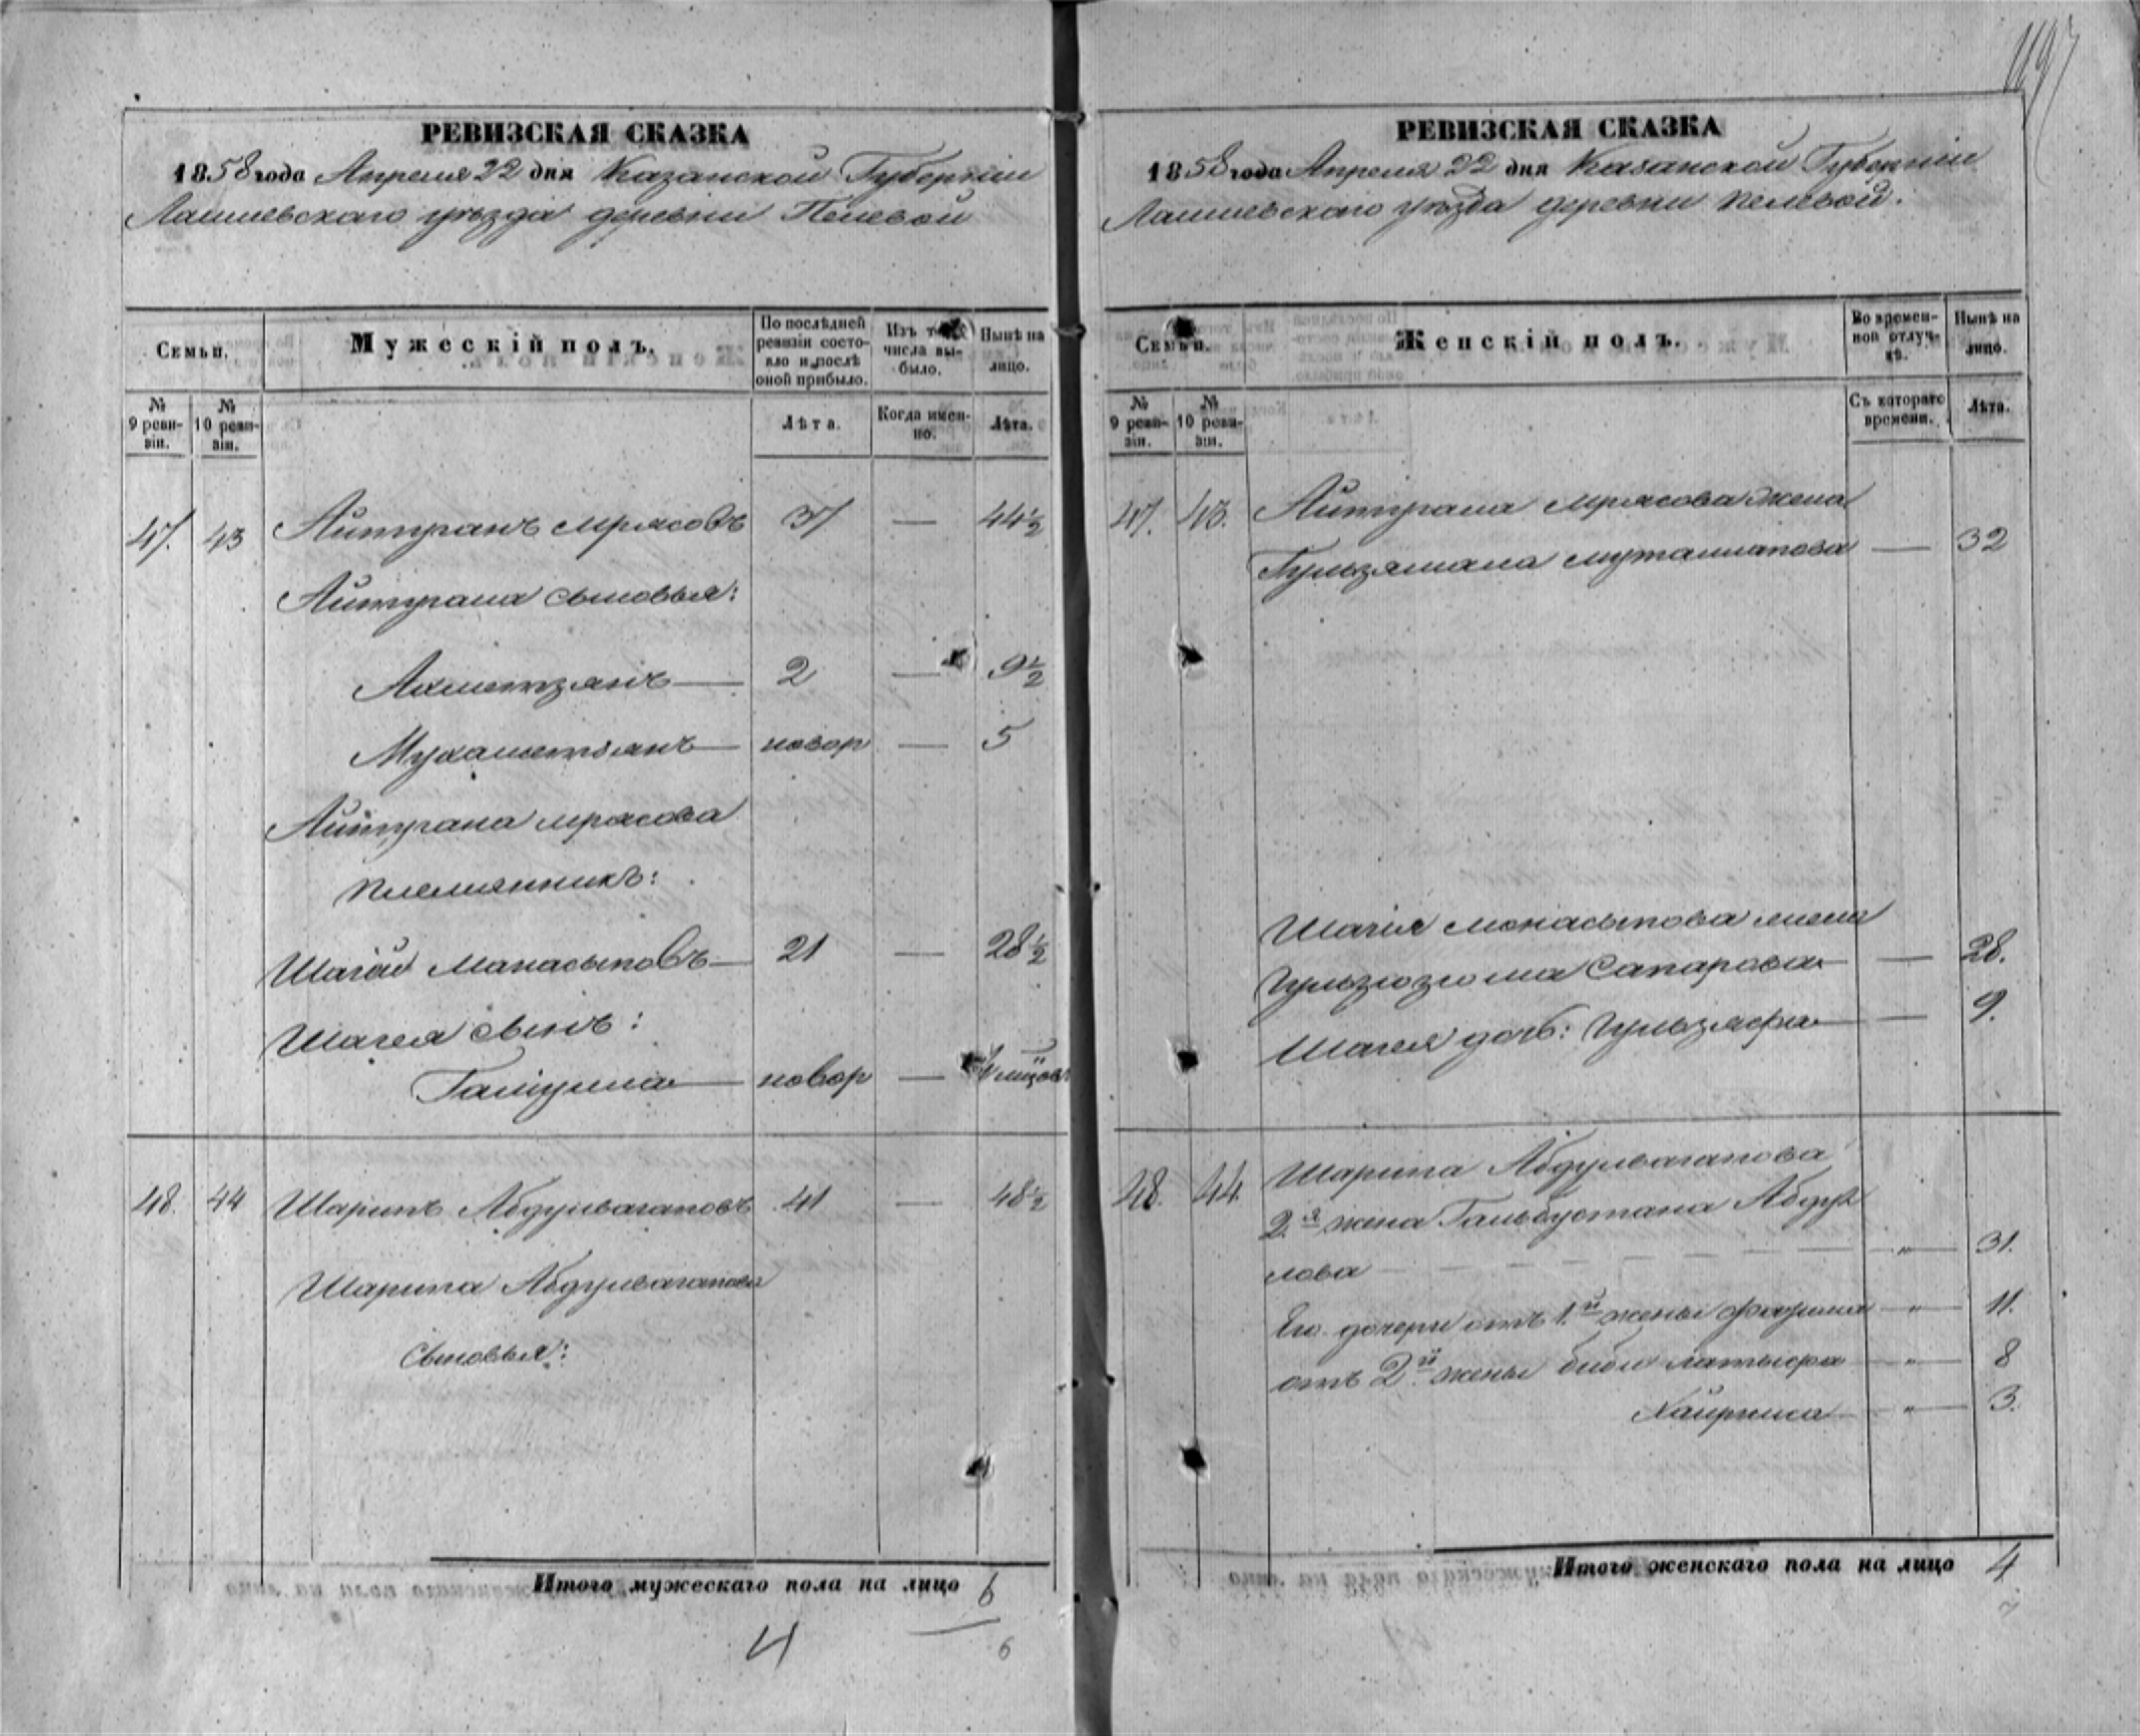 1197
РЕВИЗСКАЯ СКАЗКА
1858 года Апреля 22 дня Казанской Губернiи
Лаишевскаго уѣзда деревни Пелевой
Семьи.
Мужескiй полъ.
По послѣдней ревизiи состояло и послѣ оной прибыло.
Изъ того числа выбыло.
Нынѣ на лицо.
№ 9 ревизiи.
№ 10 ревизiи.
Лѣта.
Когда именно.
Лѣта.
47. 43 Айтуганъ Мрясовъ 37 — 44½
Айтугана сыновья:
Ахметзянъ — 2 — 9½
Мухаметзянъ — новор — 5
Айтугана Мрясова
племянникъ:
Шагiй Манасыповъ — 21 — 28½
Шагея сынъ:
новор —
48. 44 Шарипъ Абдулвагаповъ 41 — 48½
Шарипа Абдулвагапова
сыновья:
Итого мужескаго пола на лицо 6
4
6
РЕВИЗСКАЯ СКАЗКА
1858 года Апреля 22 дня Казанской Губернiи
Лаишевскаго уѣзда деревни Пелевой.
Семьи.
Женскiй полъ.
Во временной отлучкѣ.
Нынѣ на лицо.
№ 9 ревизiи.
№ 10 ревизiи.
Съ котораго времени.
Лѣта.
47. 43. Айтугана Мрясова жена
Гульзямала — 32
Шагiя Манасыпова жена
Сапарова — 28.
Шагея дочь: Гульзяфа — 9.
48. 44. Шарипа Абдулвагапова
2.я жена Гальбустана Абдул
лова — " — 31.
Его дочери отъ 1.й жены — " — 11.
отъ 2й жены Биби латыфа — " — 8
— " — 3.
Итого женскаго пола на лицо 4
7